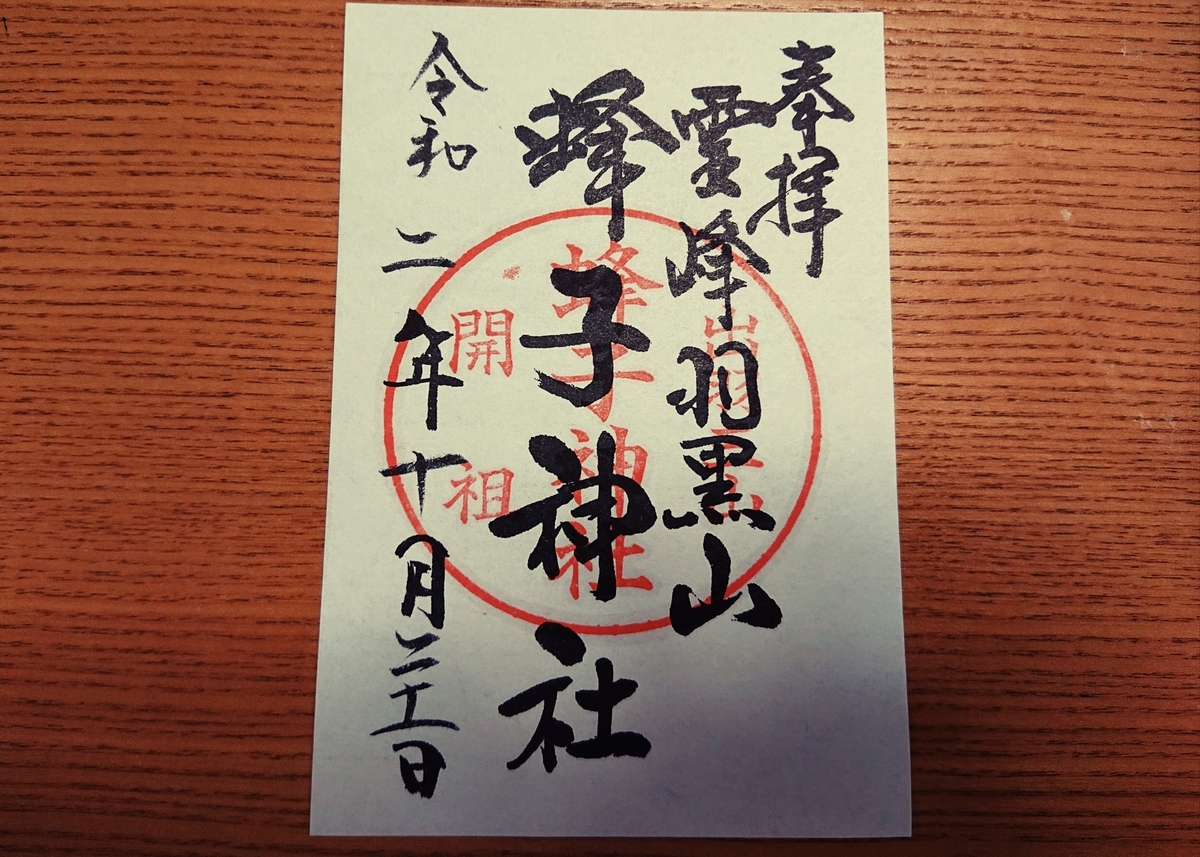 奉拝
霊峰羽黒山
蜂子神社
令和二年十月二十一日
出羽三山
蜂子神社
開祖